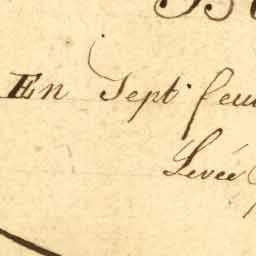 En Sept feui
Levée